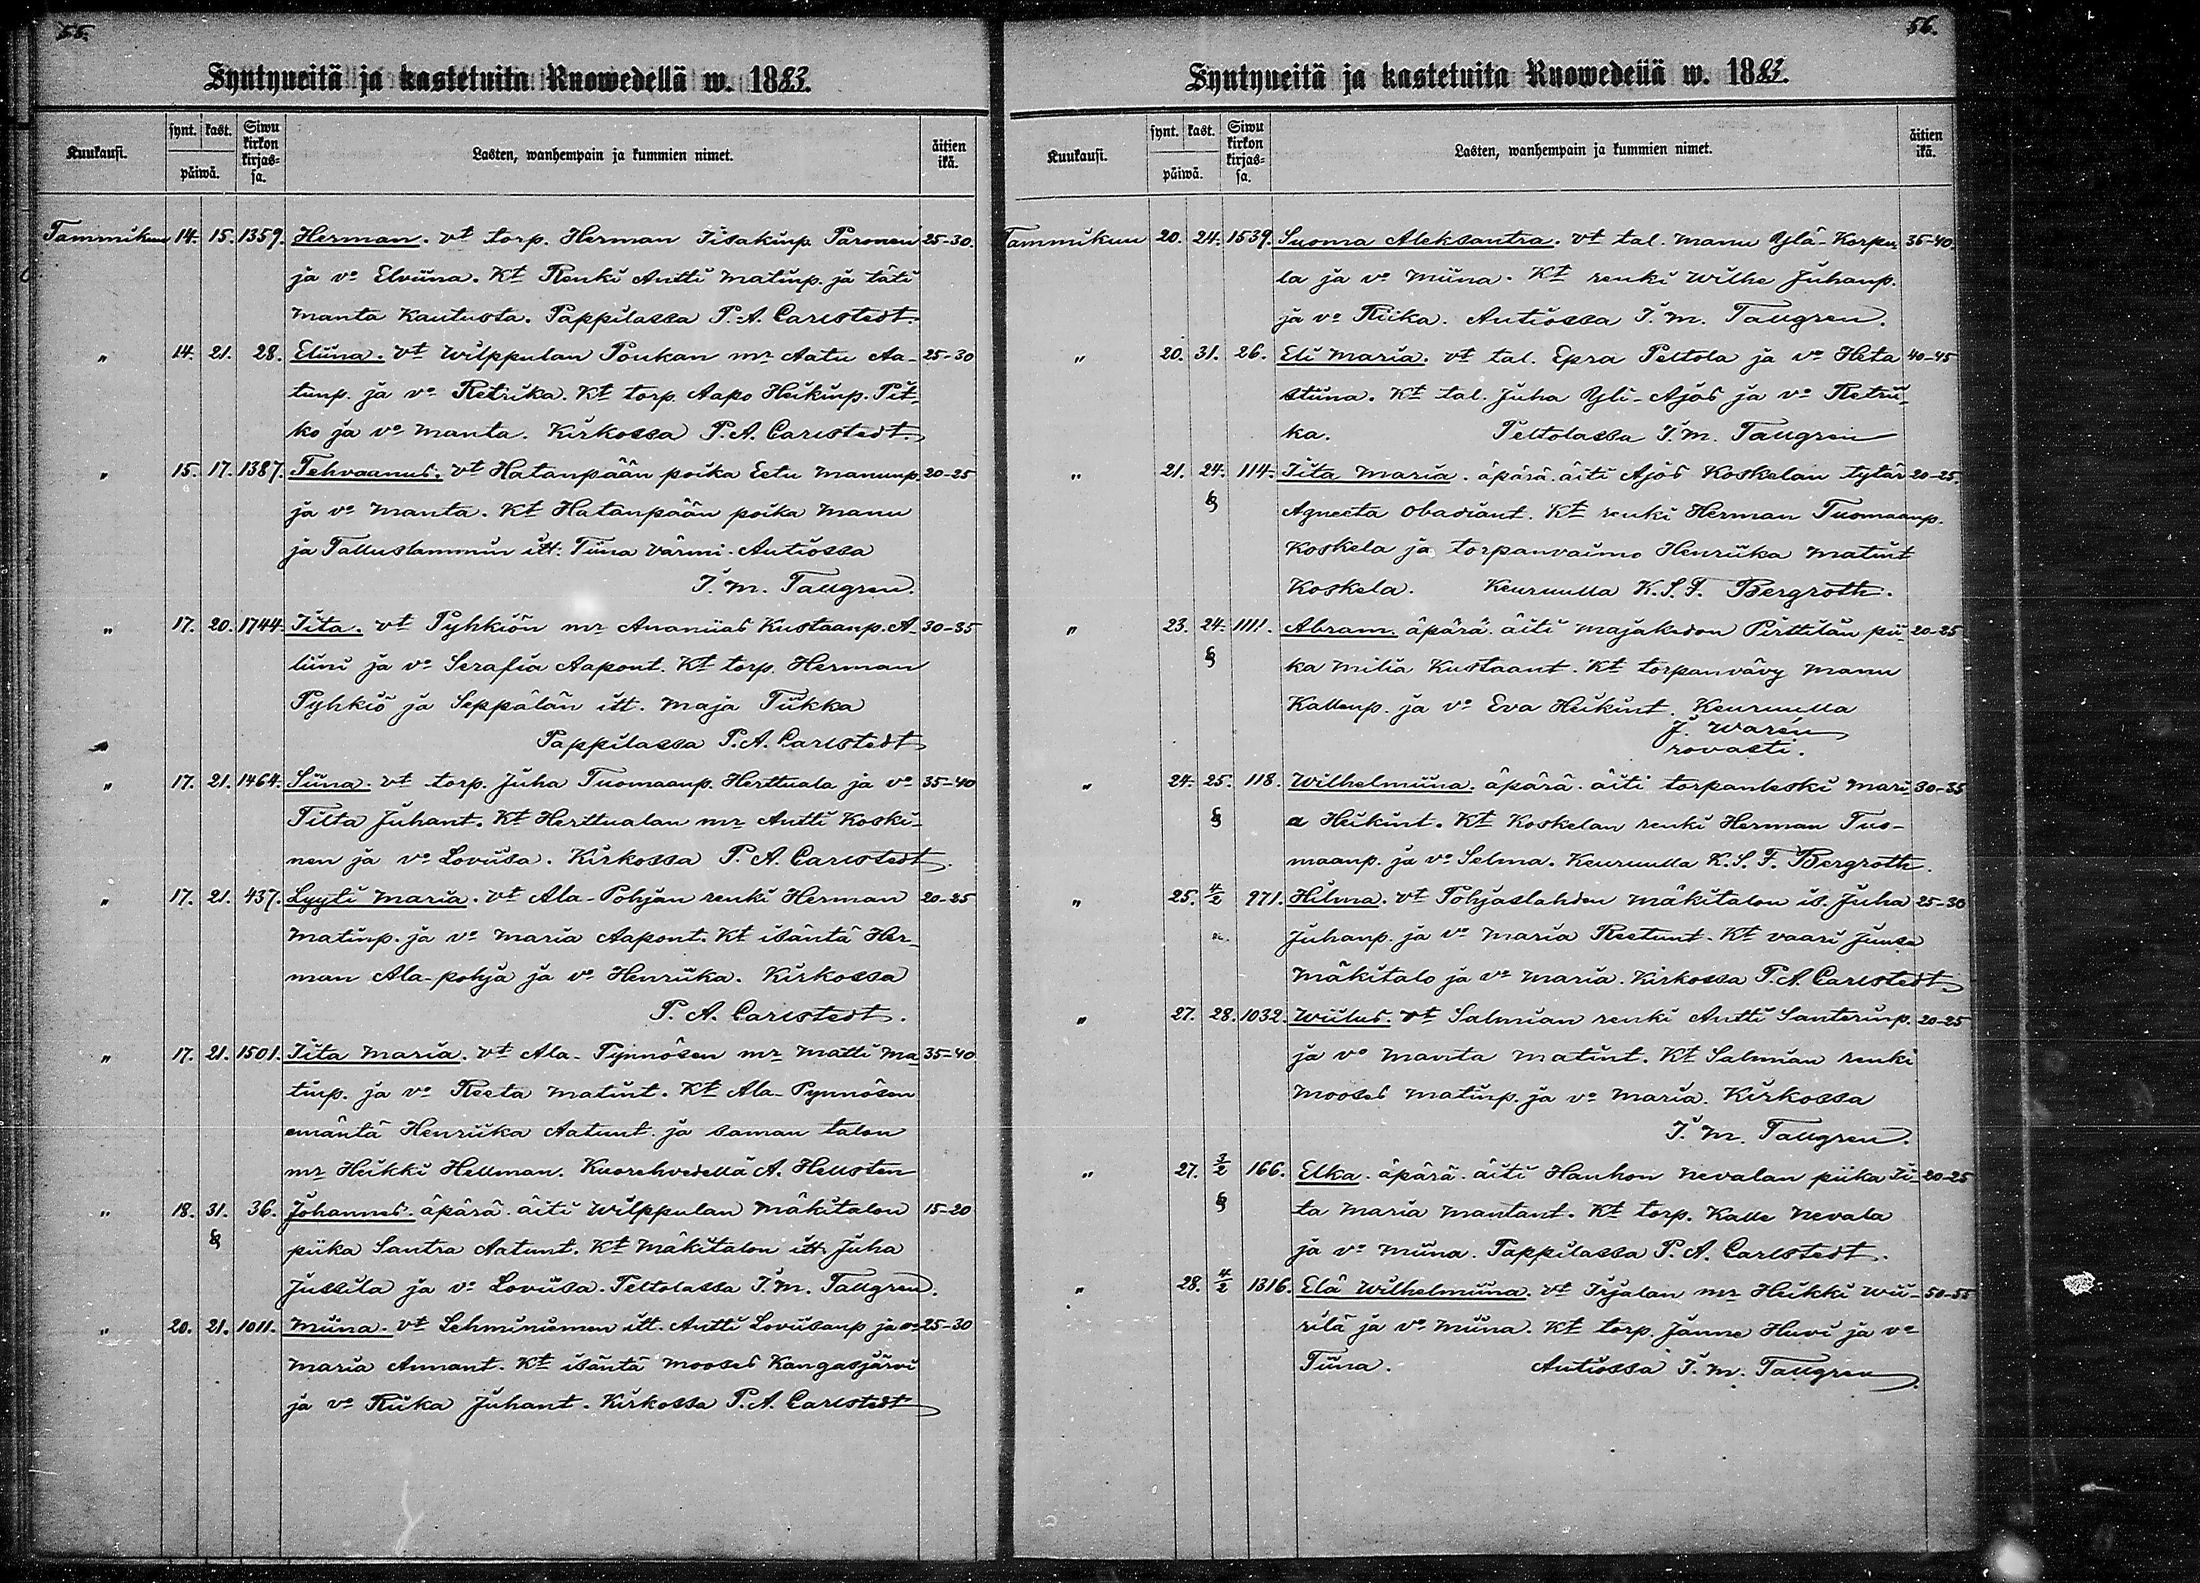 55.
Syntyneitä ja kastetuita Ruowedellä w. 1883.
Kuukausi.
synt. kast.
päiwä.
Siwu kirkon kirjas-sa.
Lasten, wanhempain ja kummien nimet.
äitien ikä.
Tammikuu 14. 15. 1359. Herman. vt torp. Herman Iisakinp. Paronen 25-30.
ja vo Elviina. Kt Renki Antti Matinp. ja täti
Manta Kautusta. Pappilassa P. A. Carlstedt.
" 14. 21. 28. Eliina. vt Wilppulan Poukan mr Aatu Aa- 25-30
tunp. ja vo Retrika. Kt torp. Aapo Heikinp. Pit-
ko ja vo Manta. Kirkossa P. A. Carlstedt.
" 15. 17. 1387. Tehvaanus. vt Hatanpään poika Eetu Manunp. 20-25
ja vo Manta. Kt Hatanpään poika Manu
ja Talluslammin itt. Tiina Värmi. Autiossa
I. M. Tallgren.
" 17. 20. 1744. Iita. vt Pyhkiön mr Ananiias Kustaanp. A- 30-35
liini ja vo Serafia Aapont. Kt torp. Herman
Pyhkiö ja Seppälän itt. Maja Tiikka
Pappilassa P. A. Carlstedt
" 17. 21. 1464. Siina. vt torp. Juha Tuomaanp. Herttuala ja vo 35-40
Tilta Juhant. Kt Herttualan mr Antti Koski-
nen ja vo Loviisa. Kirkossa P. A. Carlstedt.
" 17. 21. 437. Lyyti Maria. vt Ala-Pohjan renki Herman 20-25
Matinp. ja vo Maria Aapont. Kt isäntä Her-
man Ala-pohja ja vo Henriika. Kirkossa
P. A. Carlstedt.
" 17. 21. 1501. Iita Maria. vt Ala-Pynnösen mr Matti Ma- 35-40
tinp. ja vo Reeta Matint. Kt Ala-Pynnösen
emäntä Henriika Aatunt. ja saman talon
mr Heikki Hellman. Kuorehvedellä A. Hellsten
" 18. 31. 36. Johannes. äpärä. äiti Wilppulan Mäkitalon 15-20
§ piika Santra Aatunt. Kt Mäkitalon itt. Juha
Jussila ja vo Loviisa. Peltolassa I. M. Tallgren.
" 20. 21. 1011. Miina. vt Lehminiemen itt. Antti Loviisanp ja vo 25-30
Maria Annant. Kt isäntä Mooses Kangasjärvi
ja vo Riika Juhant. Kirkossa P. A. Carlstedt
56.
Syntyneitä ja kastetuita Ruowedellä w. 1883.
Kuukausi.
synt. kast.
päiwä.
Siwu kirkon kirjas-sa.
Lasten, wanhempain ja kummien nimet.
äitien ikä.
Tammikuu 20. 24. 1539. Suoma Aleksantra. vt tal. Manu Ylä-Korpu 35-40.
la ja vo Miina. Kt renki Wilhe Juhanp.
ja vo Riika. Autiossa I. M. Tallgren.
" 20. 31. 26. Eli Maria. vt tal. Epra Peltola ja vo Heta 40-45
stiina. Kt tal. Juha Yli-Ajos ja vo Retrii-
ka. Peltolassa I. M. Tallgren
" 21. 24. 114. Iita Maria. äpärä. äiti Ajos Koskelan tytär 20-25.
§ Agneeta Obadiant. Kt renki Herman Tuomaanp.
Koskela ja torpanvaimo Henriika Matint
Koskela. Keuruulla K. S. F. Bergroth.
" 23. 24. 1111. Abram. äpärä. äiti Majakodon Pirttilän pii- 20-25
§ ka Milia Kustaant. Kt torpanvävy Manu
Kallenp. ja vo Eva Heikint. Keuruulla
J. Warén
rovasti.
" 24. 25. 118. Wilhelmiina. äpärä. äiti torpanleski Mari- 30-35
§ a Heikint. Kt Koskelan renki Herman Tuo-
maanp. ja vo Selma. Keuruulla K. S. F. Bergroth.
" 25. 4/2 971. Hilma. vt Pohjaslahden Mäkitalon is. Juha 25-30
Juhanp. ja vo Maria Reetunt. Kt vaari Juusa
Mäkitalo ja vo Maria. Kirkossa P. A. Carlstedt.
" 27. 28. 1032. Wiilus. vt Salmian renki Antti Santerinp. 20-25
ja vo Manta Matint. Kt Salmian renki
Mooses Matinp. ja vo Maria. Kirkossa
I. M. Tallgren.
" 27. 3/2 166. Elka. äpärä. äiti Hauhon Nevalan piika Ii- 20-25
§ ta Maria Mantant. Kt torp. Kalle Nevala
ja vo Miina. Pappilassa P. A. Carlstedt.
" 28. 4/2 1316. Elä Wilhelmiina. vt Irjalan mr Heikki Wii- 50-55
rilä ja vo Miina. Kt torp. Janne Huvi ja vo
Tiina. Autiossa I. M. Tallgren.